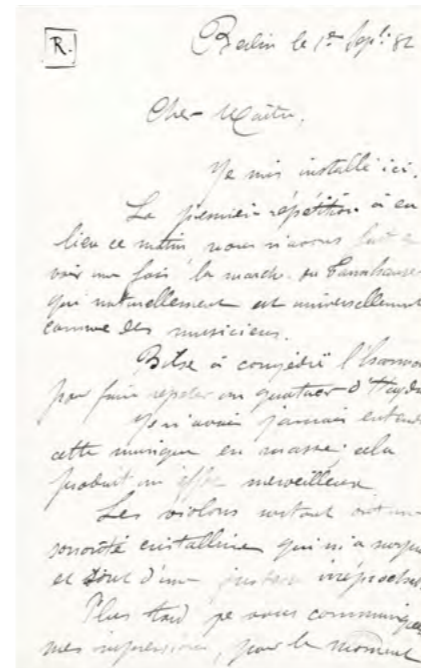 R.
Berlin le 1er Sept. 82
Cher Maître,
Je suis installé ici.
La premier répétition à eu
lieu ce matin nous n'avons fait
voir une fois la marche du Tannhauser
qui naturellement est universellement
connue des musiciens.
Bilse à congédié l'harmonie
pour faire répéter un quatuor d'Haydn
Je n'avais jamais entendu
cette musique en masse cela
produit un effet merveilleux
Les violons surtout ont une
sonorité cristalline qui m'a
et sont d'une justesse irréprochable
Plus tard je vous communiquerai
mes impressions, pour le moment